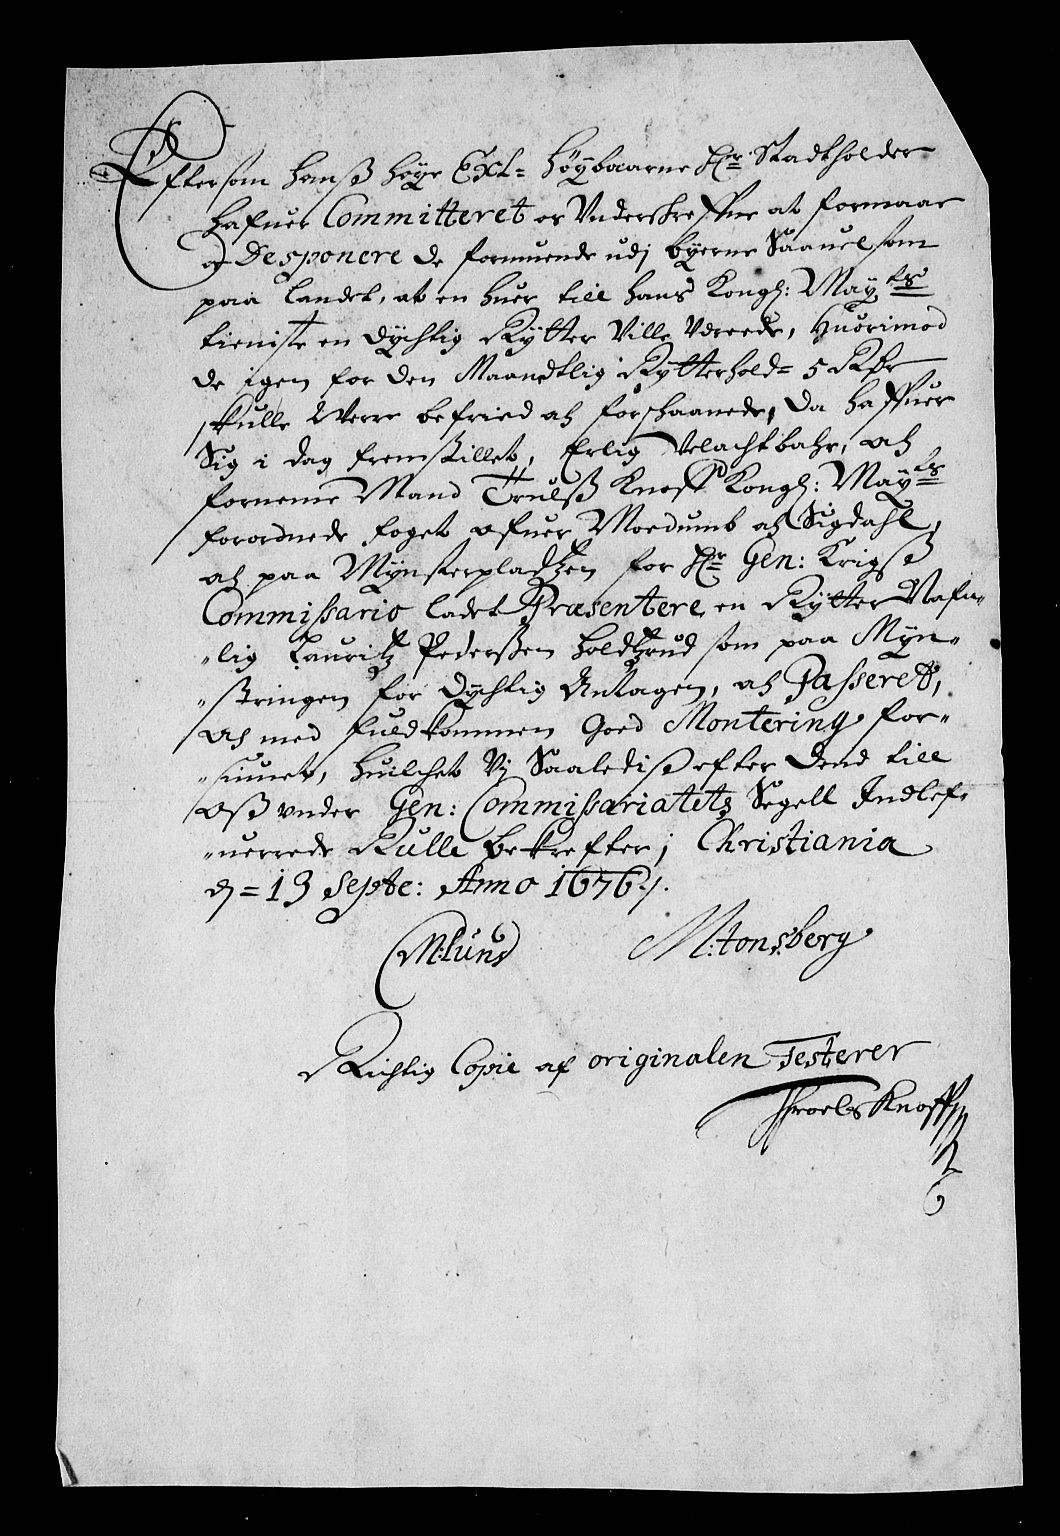 Eftersom hanß høye Exl= høybaarne Hr Stadtholder
hafuer Committeret os Underskrefne at formaae
og Desponere de formuende udj byerne Saauel som
paa landet, at en huer till hans Kongl: Mayts
tieniste en dychtig Rytter Ville Udreede, Huorimod
de igen for den Maanedtlig Rytterhold= 5 Rdr
skulle Verre befried och forschaanede, Da haffuer
Sig i dag fremstillet, Erlig Velachtbahr, och
forneme Mand Trulß Knoff Kongl: Mayts
forordnede foget ofuer Moedumb och Sigdahl,
och paa Mynsterpladtzen for Hr Gen: Krigsß
Commissario ladet Præsentere en Rytter Nafn-
-lig Lauritz Pederßen Holdtzrud som paa Myn-
-stringen for dychtig Antagen, och Passeret,
och med fuldkommen Goed Montering for-
-siunet, huilchet Vi Saaledis efter dend till
oß under Gen: Commissariatetz Segell Indlef-
-uerrede Rulle bekrefter; Christiania
d= 13 Septe: Anno 1676 ./.
M: Lund M: tonsberg
Richtig Copie af originalen Testerer
Throels Knoff